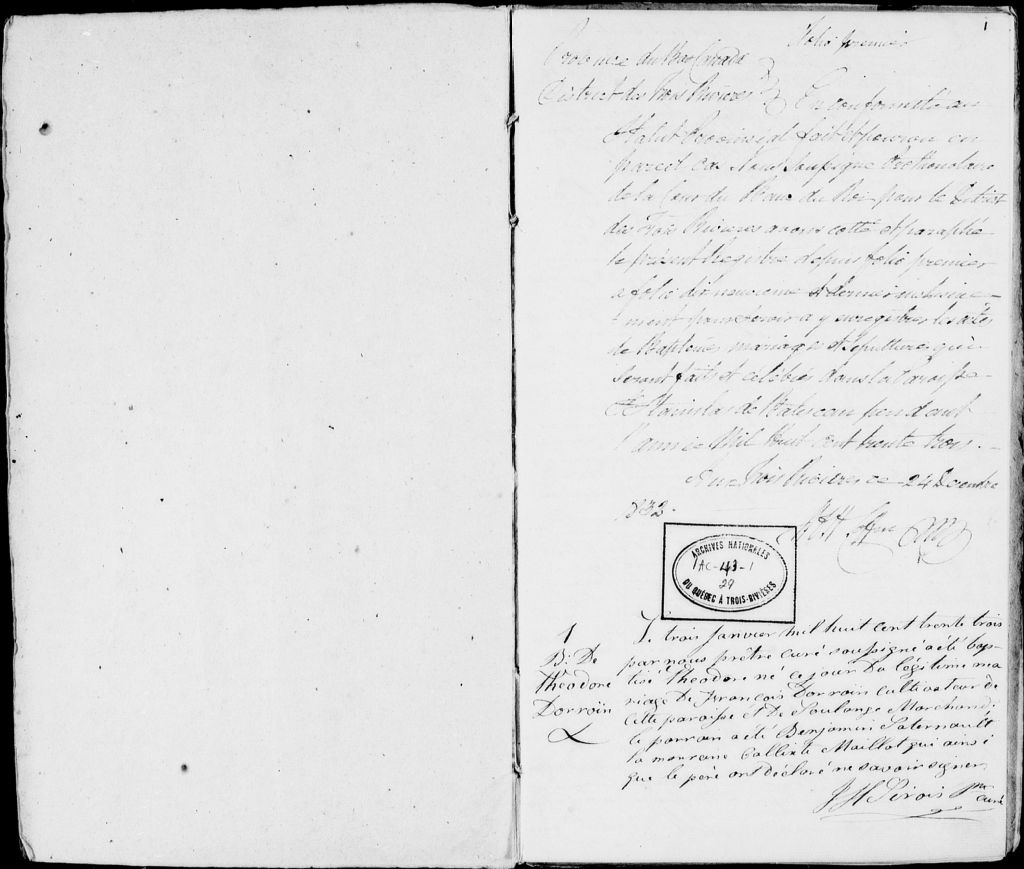 1
Folio premier
Province du Bas Canada
District des Trois Rivieres
En conformité au
Statut Provincial fait et pourvu en
pareil cas Nous Soussigné Prothonotaire
de la Cour du Banc du Roi pour le District
des Trois Rivieres avons cotté et paraphé
le present Registre depuis folio premier
a folio dix neuvieme et dernier inclusive-
ment pour servir a y enregistrer les actes
de Baptemes mariages et Sepultures qui
Seront faits et célébrés dans la Paroisse
St Stanislas de Batiscan pendant
l'année Mil huit cent trente trois.
Aux Trois Rivieres ce 24 Decembre
1832.
ARCHIVES NATIONALES
AC-43-1
29
DU QUÉBEC À TROIS-RIVIÈRES
1
B: De
Théodore
Dorroin
Le trois Janvier mil huit cent trente trois
par nous prêtre curé soussigné a été bap-
tisé Théodore né ce jour Du légitime ma
riage De François Dorroin cultivateur de
cette paroisse et De Soulange Marchand;
le parrain a été Benjamin Paternault
la marraine Callixte Maillot qui ainsi
que le père ont déclaré ne savoir signer
curé